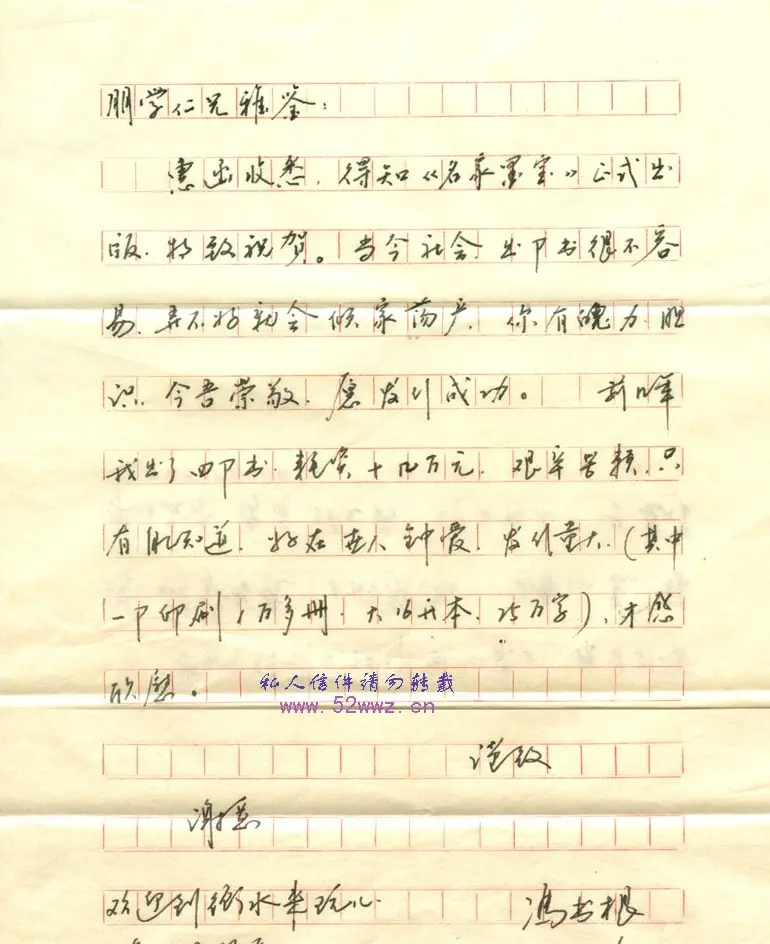 朋学仁兄雅鉴：
惠函收悉，得知《名家墨宝》正式出
版，特致祝贺。当今社会，出卩书很不容
易，弄不好就会倾家荡产，你有魄力、胆
识，令吾崇敬，愿发行成功。前几年
我出了四卩书，耗资十几万元，艰辛苦颖，只
有自己知道，好在世人钟爱，发行量大，(其中
一卩印刷1万多册，大16开本，25万字)，才感
欣慰。
私人信件请勿转载
www.52wwz.cn
谨致
谢意
欢迎到衡水来玩儿
冯书根